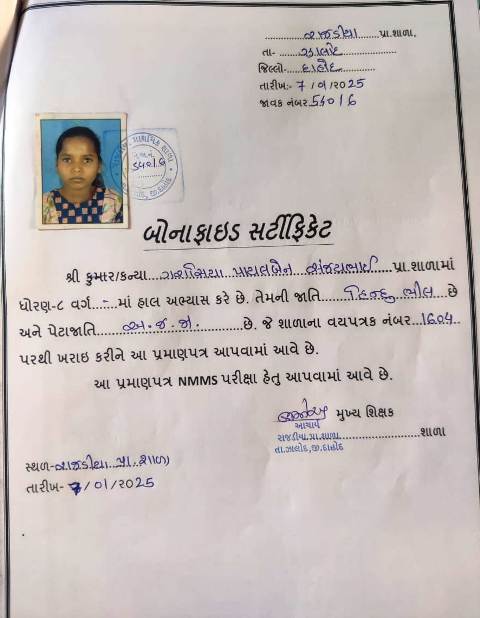 રાજડીયા પ્રા.શાળા.
તા- ઝાલોદ
જિલ્લો- દાહોદ
તારીખ:- 7/01/2025
જાવક નંબર
બોનાફાઇડ સર્ટીફિકેટ
શ્રી કુમાર/કન્યા પાયલબેન સંજયભાઈ પ્રા.શાળામાં
ધોરણ-૮ વર્ગ - માં હાલ અભ્યાસ કરે છે. તેમની જાતિ હિન્દુ ભીલ છે
અને પેટાજાતિ અ.જ.જા. છે. જે શાળાના વયપત્રક નંબર 1604
પરથી ખરાઇ કરીને આ પ્રમાણપત્ર આપવામાં આવે છે.
આ પ્રમાણપત્ર NMMS પરીક્ષા હેતુ આપવામાં આવે છે.
મુખ્ય શિક્ષક
આચાર્ય
રાજડીયા.પ્રા.શાળા શાળા
તા.ઝાલોદ,જી.દાહોદ
સ્થળ-રાજડીયા પ્રા.શાળા
તારીખ- 7/01/2025